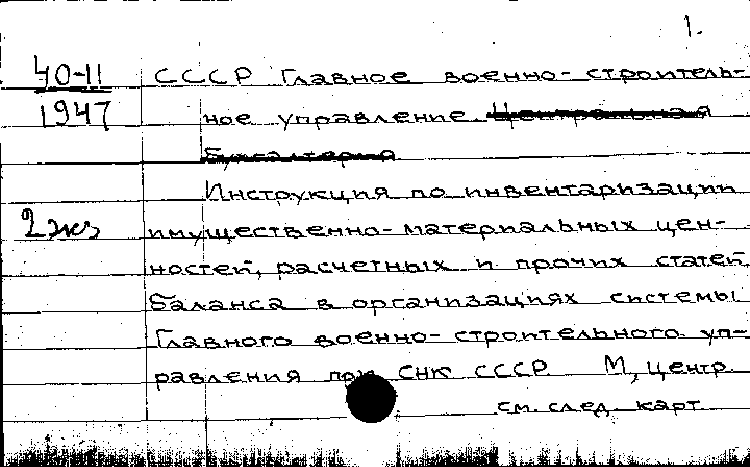 1.
40-11 СССР Главное военно-строитель-
1947 ное управление Центральная
Бухгалтерия
Инструкция по инвентаризации
2 экз имущественно-материальных цен-
ностей, расчетных и прочих статей
баланса в организациях системы
Главного военно-строительного уп-
равления при СНК СССР М, Центр.
см. след. карт